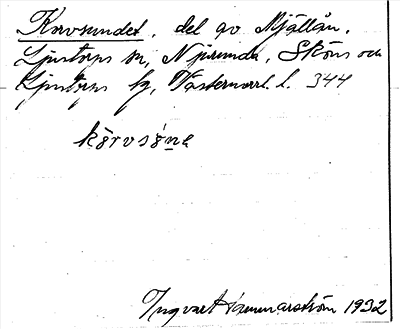 Korvsundet, del av Mjällån.
Ljustorps sn, Njurunda, Sköns och
Ljustorps tg, Västernorrl. l. 344
kørvsøne
Ingvar Hammarström 1932